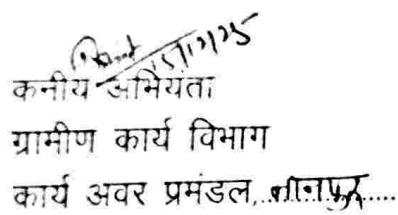 कनीय अभियंता
ग्रामीण कार्य विभाग
कार्य अवर प्रमंडल,